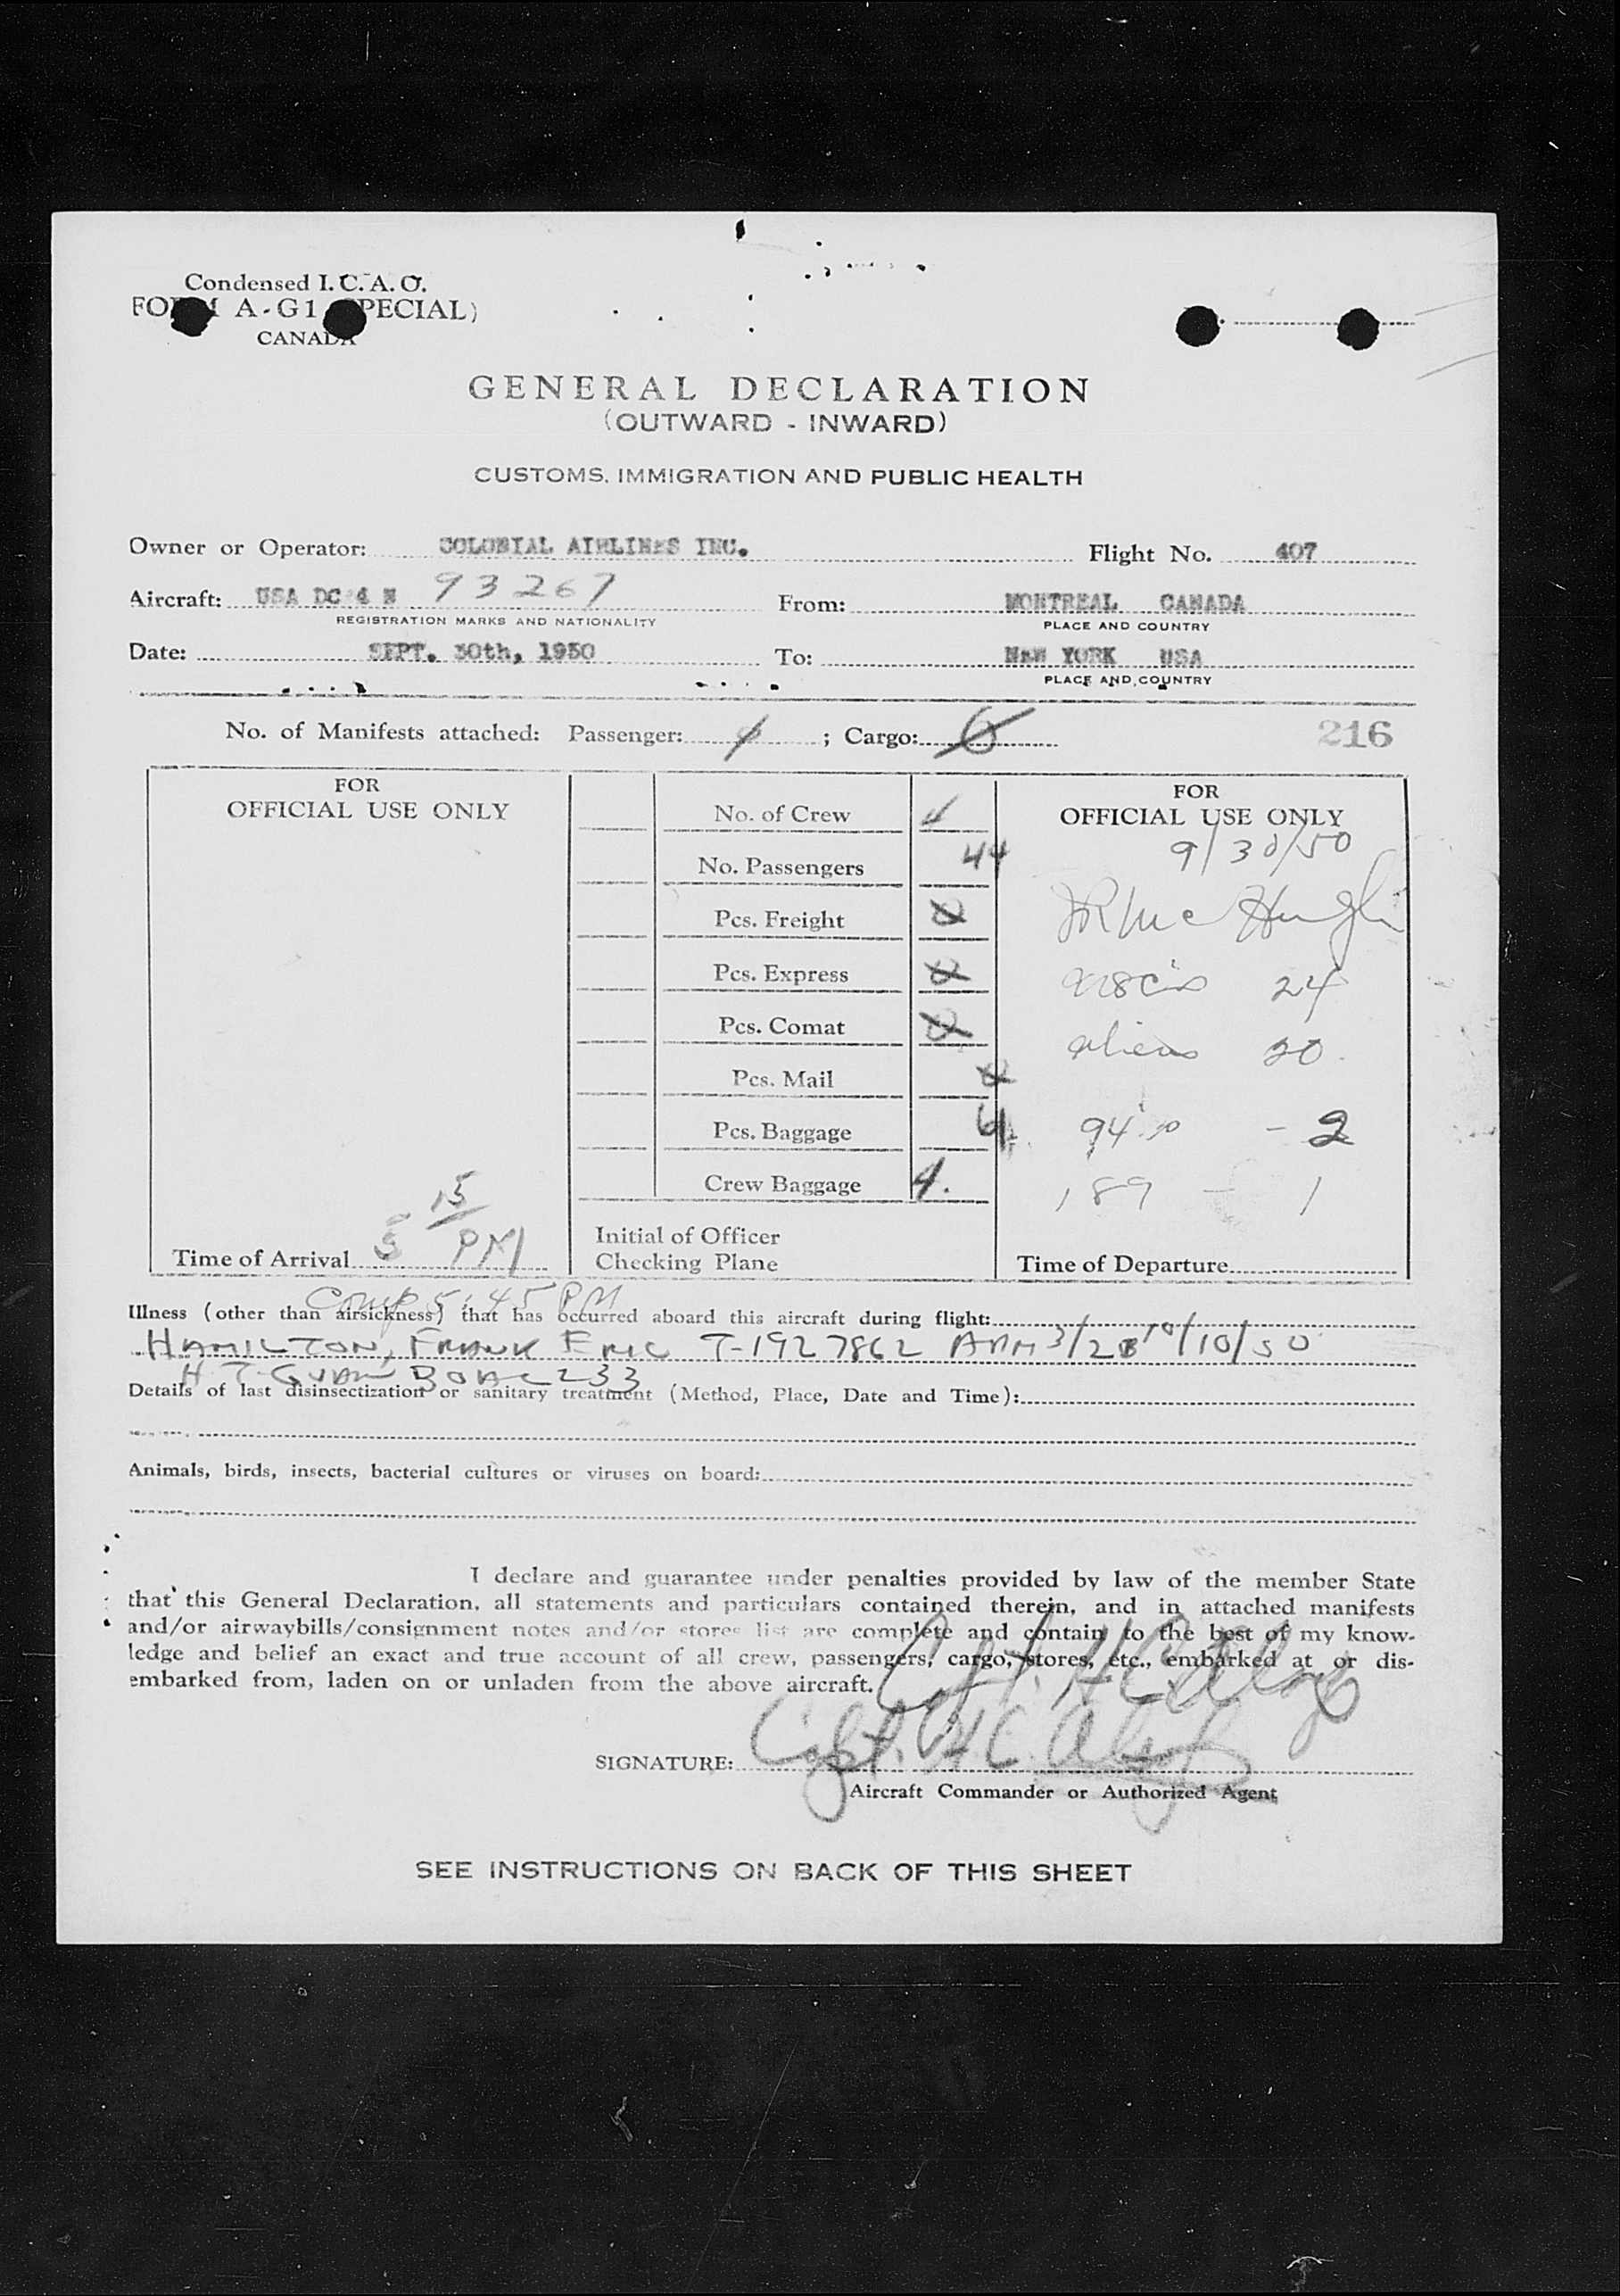 Condensed I. C. A. O.
A-G1
CANADA
GENERAL DECLARATION
(OUTWARD - INWARD)
CUSTOMS, IMMIGRATION AND PUBLIC HEALTH
Owner or Operator: COLONIAL AIRLINES INC. Flight No. 407
Aircraft: USA DC 4 N 93267 From: MONTREAL CANADA
REGISTRATION MARKS AND NATIONALITY PLACE AND COUNTRY
Date: SEPT. 30th, 1950 To: NEW YORK USA
PLACE AND COUNTRY
No. of Manifests attached: Passenger: ; Cargo: 216
FOR
OFFICIAL USE ONLY
No. of Crew 4
No. Passengers 44
Pcs. Freight 0
Pcs. Express 0
Pcs. Comat 0
Pcs. Mail 0
Pcs. Baggage
Crew Baggage 4.
Initial of Officer
Checking Plane
FOR
OFFICIAL USE ONLY
9/30/50
JR McHugh
24
aliens 20
- 2
189 - 1
Time of Arrival 5 15 PM
Time of Departure
Comp 5:45 PM
Illness (other than airsickness) that has occurred aboard this aircraft during flight:
HAMILTON, FRANK ERIC T-1927862 3/28 10/10/50
H. T. BOAC 233
Details of last disinsectization or sanitary treatment (Method, Place, Date and Time):
Animals, birds, insects, bacterial cultures or viruses on board:
I declare and guarantee under penalties provided by law of the member State
that this General Declaration, all statements and particulars contained therein, and in attached manifests
and/or airwaybills/consignment notes and/or stores list are complete and contain to the best of my know-
ledge and belief an exact and true account of all crew, passengers, cargo, stores, etc., embarked at or dis-
embarked from, laden on or unladen from the above aircraft.
SIGNATURE: Capt. H C
Aircraft Commander or Authorized Agent
SEE INSTRUCTIONS ON BACK OF THIS SHEET